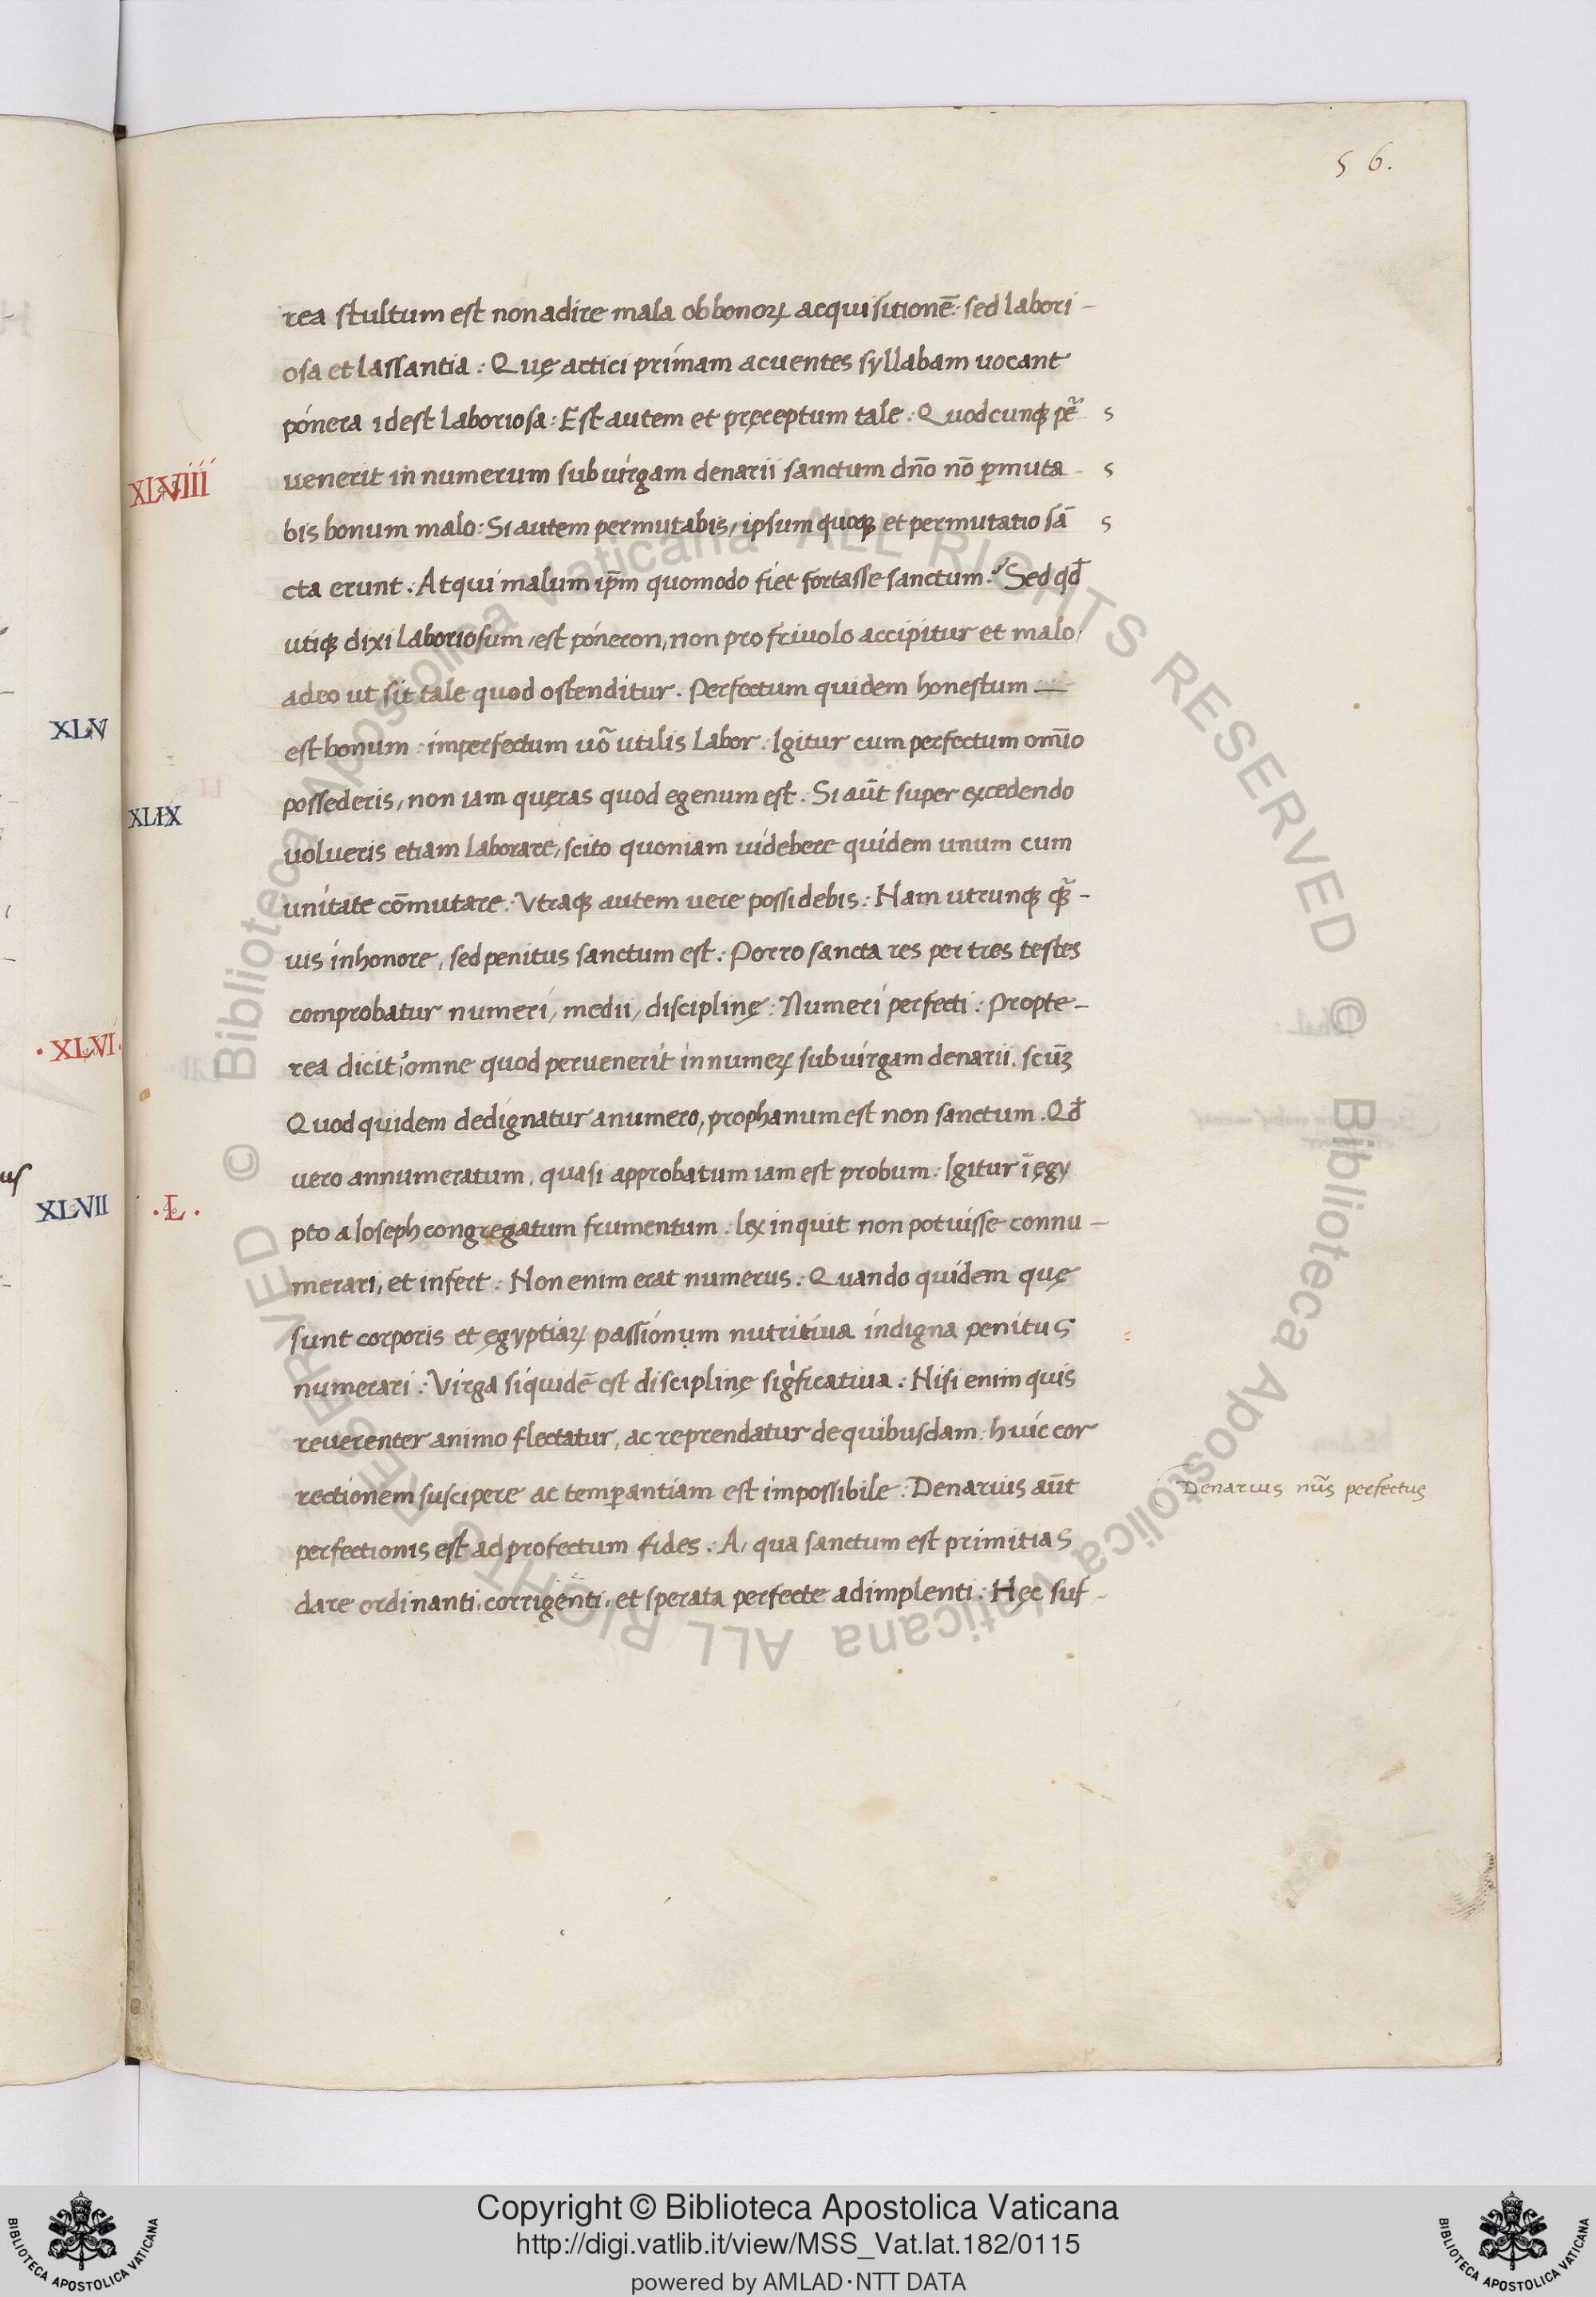 56.
rea stultum est non adire mala ob bonoꝝ acquisitionē: sed labori-
osa et lassantia: Quę actici primam acuentes syllabam uocant
pónera idest laboriosa: Est autem et pręceptum tale: Quodcunqꝫ pẽ s
XLVIIII
uenerit in numerum sub uirgam denarii sanctum dño nō ꝑmuta- s
bis bonum malo: Si autem permutabis, ipsum quoqꝫ et permutatio sā s
cta erunt. Atqui malum ip̄m quomodo fiet fortasse sanctum? Sed qđ
utiqꝫ dixi laboriosum, est póneron, non pro friuolo accipitur et malo,
adeo ut sit tale quod ostenditur. Perfectum quidem honestum —
XLV
est bonum: imperfectum uõ utilis labor: Igitur cum perfectum om̄io
possederis, non iam quęras quod egenum est. Si aūt super excedendo
XLIX
uolueris etiam laborare, scito quoniam uidebere quidem unum cum
unitate cōmutare: Vtraqꝫ autem uere possidebis: Nam utrunqꝫ qꝫ̃-
uis in honore, sed penitus sanctum est: Porro sancta res per tres testes
comprobatur numeri, medii, disciplinę: Numeri perfecti: Propte-
·XLVI·
rea dicit᷒, omne quod peruenerit in numeꝝ sub uirgam denarii. scūꝫ
Quod quidem dedignatur a numero, prophanum est non sanctum. Qđ
us
uero annumeratum, quasi approbatum iam est probum: Igitur ī ęgy
XLVII
·L·
pto a Ioseph congregatum frumentum: lex inquit non potuisse connu-
merari, et infert: Non enim erat numerus: Quando quidem quę
sunt corporis et ęgyptiaꝝ passionum nutritiua indigna penitus
numerari: Virga siquidē est disciplinę sigͥficatiua: Nisi enim quis
reuerenter animo flectatur, ac reprendatur de quibusdam: huic cor
rectionem suscipere ac temꝑantiam est impossibile: Denarius aūt
Denarius nūs perfectus
perfectionis est ad profectum fides: A, qua sanctum est primitias
dare ordinanti, corrigenti, et sperata perfecte adimplenti: Hęc suf-
Copyright © Biblioteca Apostolica Vaticana
http://digi.vatlib.it/view/MSS_Vat.lat.182/0115
powered by AMLAD·NTT DATA
BIBLIOTECA APOSTOLICA VATICANA
BIBLIOTECA APOSTOLICA VATICANA
© Biblioteca Apostolica Vaticana ALL RIGHTS RESERVED © Biblioteca Apostolica Vaticana ALL RIGHTS RESERVED